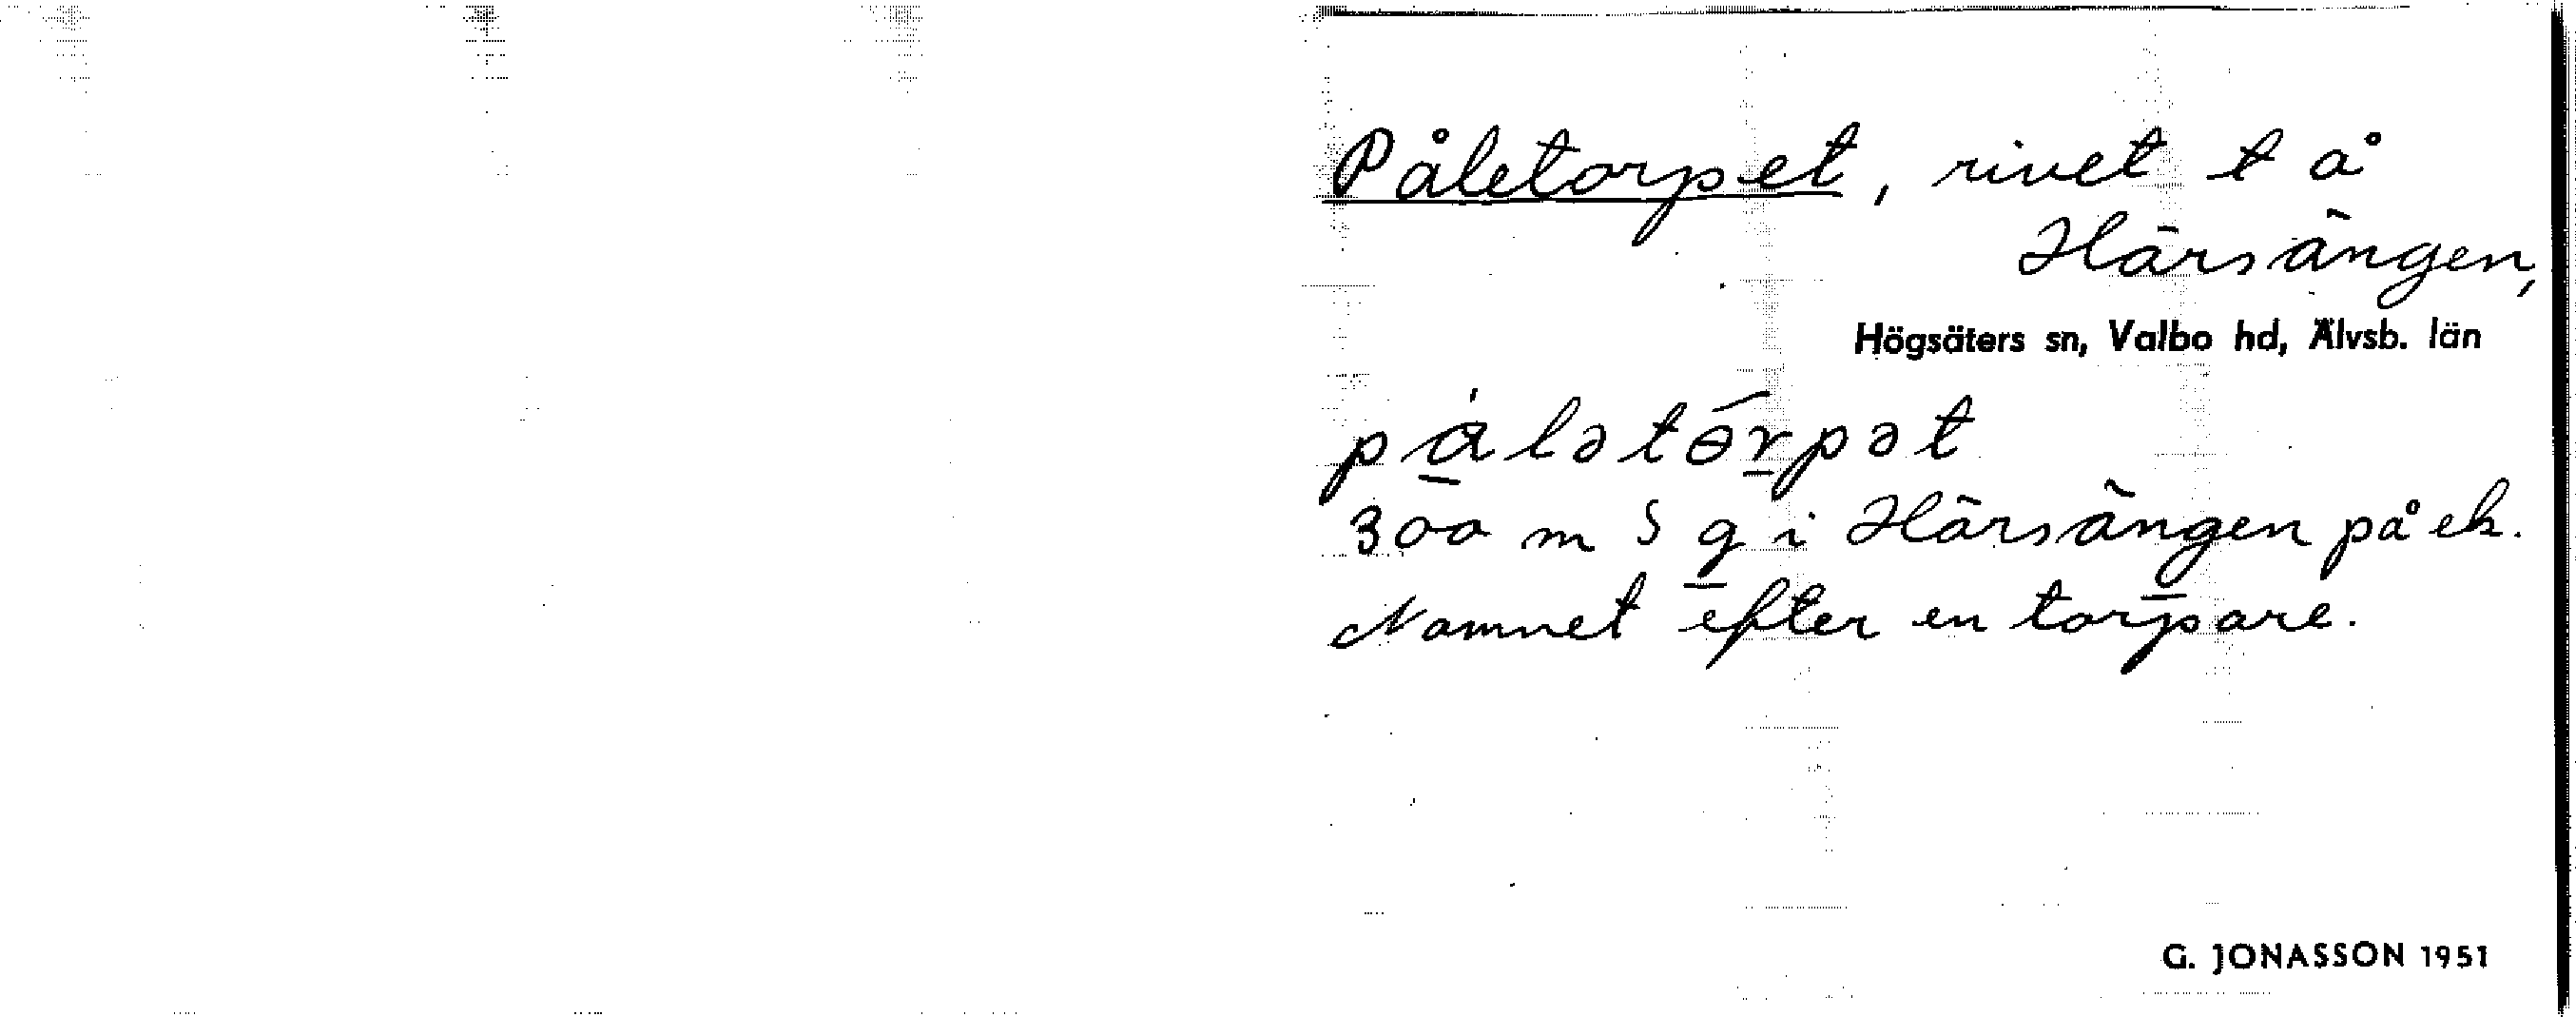 Påletorpet, rivet t å
Härsängen,
Högsäters sn, Valbo hd, Älvsb. län
pålətɵ́rpət
300 m S g i Härsängen på ek.
Namnet efter en torpare.
G. JONASSON 1951